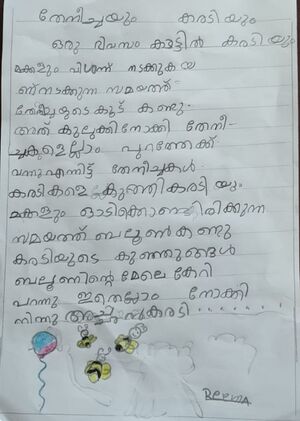 തേനീച്ചയും കരടിയും
ഒരു ദിവസം കാട്ടിൽ കരടിയും
മക്കളും വിശന്ന് നടക്കുകയ
ണ് നടക്കുന്ന സമയത്ത്
തേനീച്ചയുടെ കൂട് കണ്ടു.
അത് കുലുക്കി നോക്കി തേനീ-
ച്ചകളെല്ലാം പുറത്തേക്ക്
വന്നു എന്നിട്ട് തേനീച്ചകൾ
കരടികളെ കുത്തി കരടിയും
മക്കളും ഓടിക്കൊണ്ടിരിക്കുന്ന
സമയത്ത് ബലൂൺ കണ്ടു
കരടിയുടെ കുഞ്ഞുങ്ങൾ
ബലൂണിന്റെ മേലെ കേറി
പറന്നു. ഇതെല്ലാം നോക്കി
നിന്നു കരടി........
REEWA